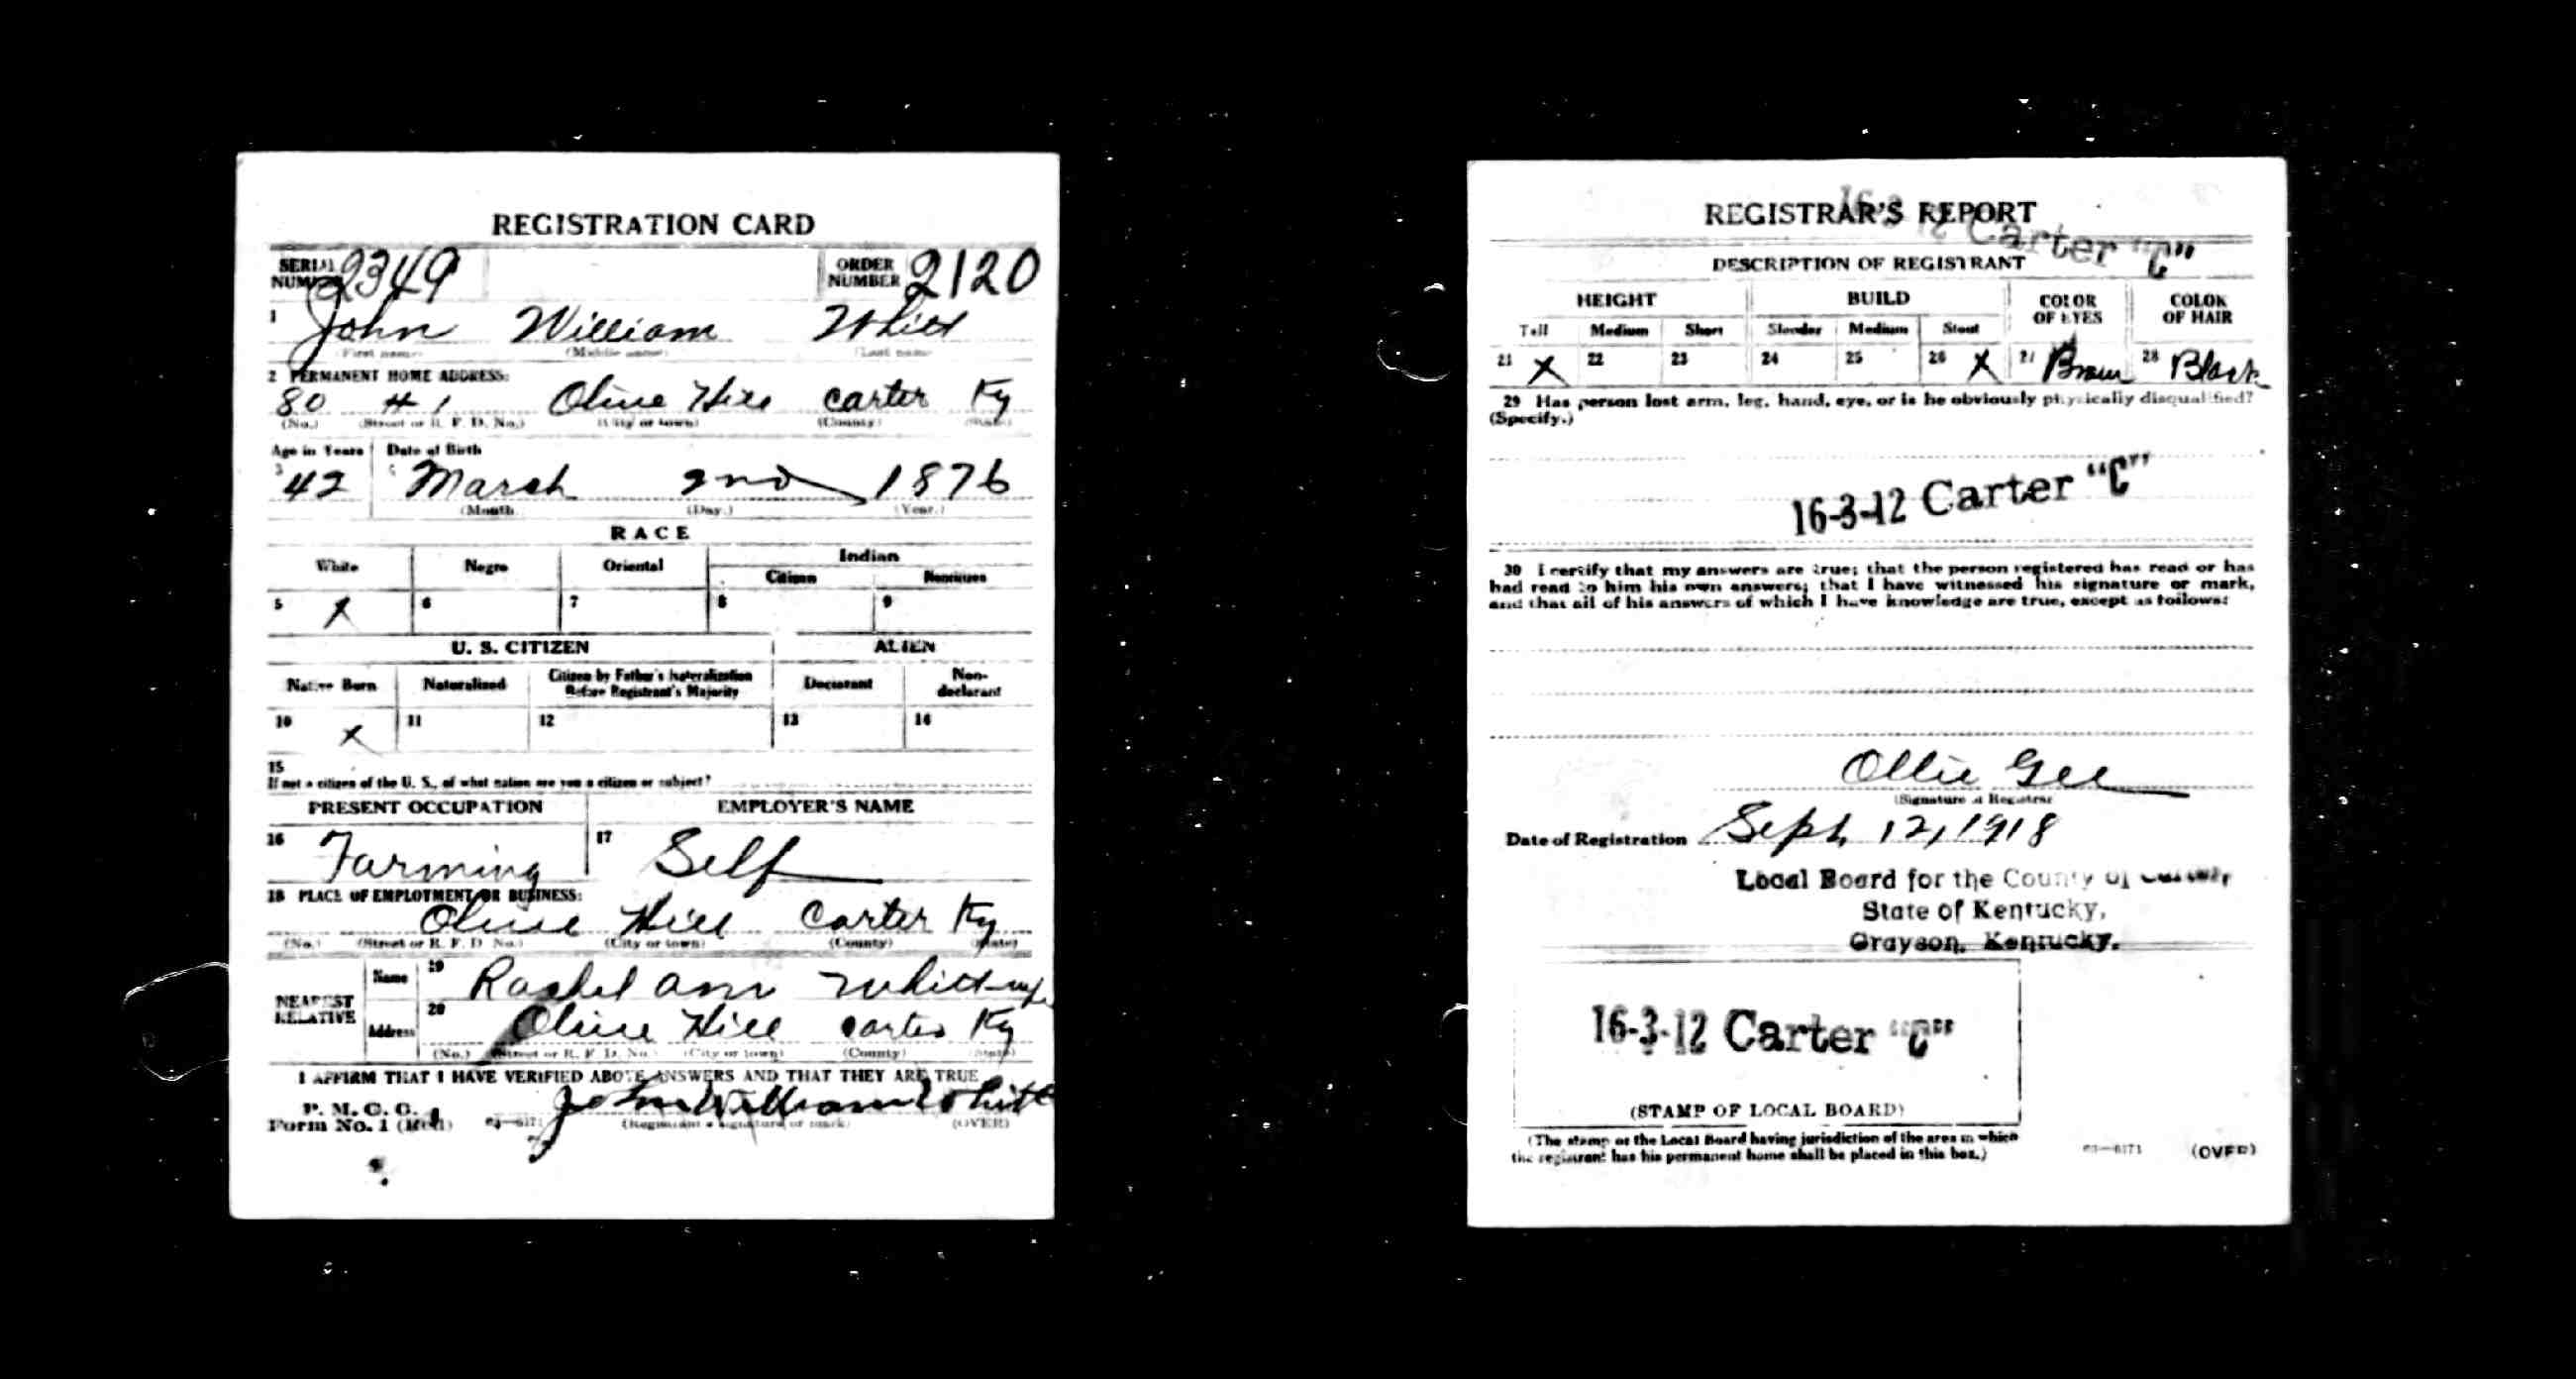 REGISTRATION CARD
SERIAL NUMBER 2349 ORDER NUMBER 2120
1 John William Whitt
(First name) (Middle name) (Last name)
2 PERMANENT HOME ADDRESS:
80 # 1 Olive Hill Carter Ky
(No.) (Street or R. F. D. No.) (City or town) (County) (State)
Age in Years Date of Birth
3 42 4 March 2nd 1876
(Month) (Day.) (Year.)
RACE
White Negro Oriental Indian
Citizen Noncitizen
5 X 6 7 8 9
U. S. CITIZEN ALIEN
Native Born Naturalized Citizen by Father's Naturalization Before Registrant's Majority Declarant Non-declarant
10 X 11 12 13 14
15
If not a citizen of the U. S., of what nation are you a citizen or subject?
PRESENT OCCUPATION EMPLOYER'S NAME
16 Farming 17 Self
18 PLACE OF EMPLOYMENT OR BUSINESS:
Olive Hill Carter Ky
(No.) (Street or R. F. D. No.) (City or town) (County) (State)
NEAREST RELATIVE
Name 19 Rachel Ann Whitt-wife
Address 20 Olive Hill Carter Ky
(No.) (Street or R. F. D. No.) (City or town) (County) (State)
I AFFIRM THAT I HAVE VERIFIED ABOVE ANSWERS AND THAT THEY ARE TRUE
P. M. G. O.
Form No. 1 (Red) 03—6171 John William Whitt
(Registrant's signature or mark) (OVER)
REGISTRAR'S REPORT
16-3-12 Carter "C"
DESCRIPTION OF REGISTRANT
HEIGHT BUILD COLOR OF EYES COLOR OF HAIR
Tall Medium Short Slender Medium Stout
21 X 22 23 24 25 26 X 27 Brown 28 Black
29 Has person lost arm, leg, hand, eye, or is he obviously physically disqualified?
(Specify.)
16-3-12 Carter "C"
30 I certify that my answers are true; that the person registered has read or has
had read to him his own answers; that I have witnessed his signature or mark,
and that all of his answers of which I have knowledge are true, except as follows:
Ollie Gee
(Signature of Registrar)
Date of Registration Sept 12, 1918
Local Board for the County of Carter,
State of Kentucky,
Grayson, Kentucky.
16-3-12 Carter "C"
(STAMP OF LOCAL BOARD)
(The stamp of the Local Board having jurisdiction of the area in which
the registrant has his permanent home shall be placed in this box.)
03—6171 (OVER)